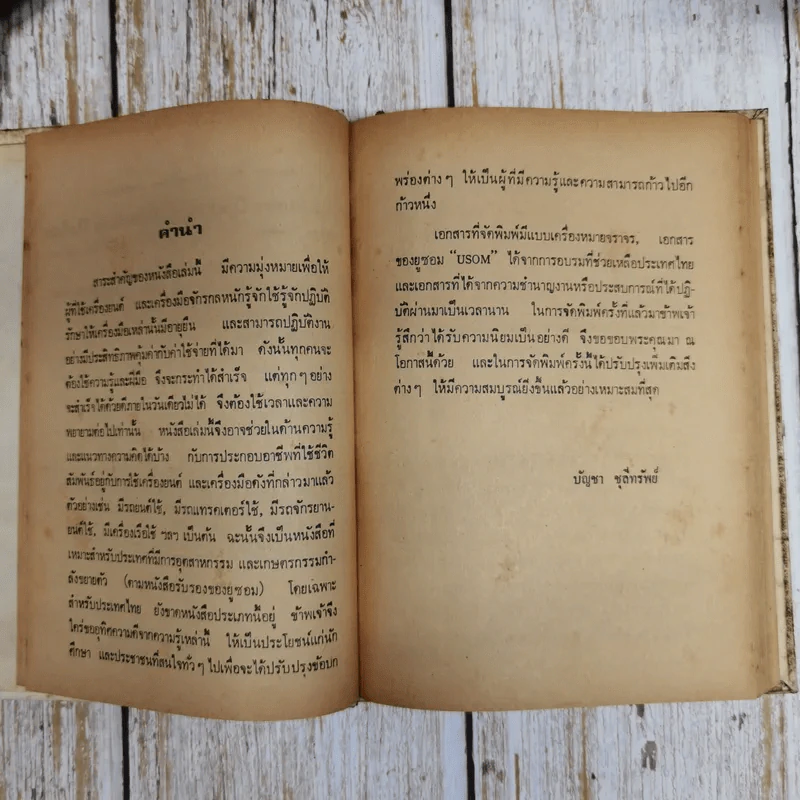 คำนำ
สาระสำคัญของหนังสือเล่มนี้ มีความมุ่งหมายเพื่อให้
ผู้ที่ใช้เครื่องยนต์ และเครื่องมือจักรกลหนักรู้จักใช้รู้จักปฏิบัติ
รักษาให้เครื่องมือเหล่านั้นมีอายุยืน และสามารถปฏิบัติงาน
อย่างมีประสิทธิภาพคุ้มค่ากับค่าใช้จ่ายที่ได้มา ดังนั้นทุกคนจะ
ต้องใช้ความรู้และฝีมือ จึงจะกระทำได้สำเร็จ แต่ทุกๆ อย่าง
จะสำเร็จได้ด้วยดีภายในวันเดียวไม่ได้ จึงต้องใช้เวลาและความ
พยายามต่อไปเท่านั้น หนังสือเล่มนี้จึงอาจช่วยในด้านความรู้
และแนวทางความคิดได้บ้าง กับการประกอบอาชีพที่ใช้ชีวิต
สัมพันธ์อยู่กับการใช้เครื่องยนต์ และเครื่องมือดังที่กล่าวมาแล้ว
ตัวอย่างเช่น มีรถยนต์ใช้, มีรถแทรคเตอร์ใช้, มีรถจักรยาน-
ยนต์ใช้, มีเครื่องเรือใช้ ฯลฯ เป็นต้น ฉะนั้นจึงเป็นหนังสือที่
เหมาะสำหรับประเทศที่มีการอุตสาหกรรม และเกษตรกรรมกำ-
ลังขยายตัว (ตามหนังสือรับรองของยูซอม) โดยเฉพาะ
สำหรับประเทศไทย ยังขาดหนังสือประเภทนี้อยู่ ข้าพเจ้าจึง
ใคร่ขออุทิศความดีจากความรู้เหล่านี้ ให้เป็นประโยชน์แก่นัก
ศึกษา และประชาชนที่สนใจทั่วๆ ไปเพื่อจะได้ปรับปรุงข้อบก
พร่องต่างๆ ให้เป็นผู้ที่มีความรู้และความสามารถก้าวไปอีก
ก้าวหนึ่ง
เอกสารที่จัดพิมพ์มีแบบเครื่องหมายจราจร, เอกสาร
ของยูซอม “USOM” ได้จากการอบรมที่ช่วยเหลือประเทศไทย
และเอกสารที่ได้จากความชำนาญงานหรือประสบการณ์ที่ได้ปฏิ-
บัติผ่านมาเป็นเวลานาน ในการจัดพิมพ์ครั้งที่แล้วมาข้าพเจ้า
รู้สึกว่าได้รับความนิยมเป็นอย่างดี จึงขอขอบพระคุณมา ณ
โอกาสนี้ด้วย และในการจัดพิมพ์ครั้งนี้ได้ปรับปรุงเพิ่มเติมสิ่ง
ต่างๆ ให้มีความสมบูรณ์ยิ่งขึ้นแล้วอย่างเหมาะสมที่สุด
บัญชา ชุลีทรัพย์